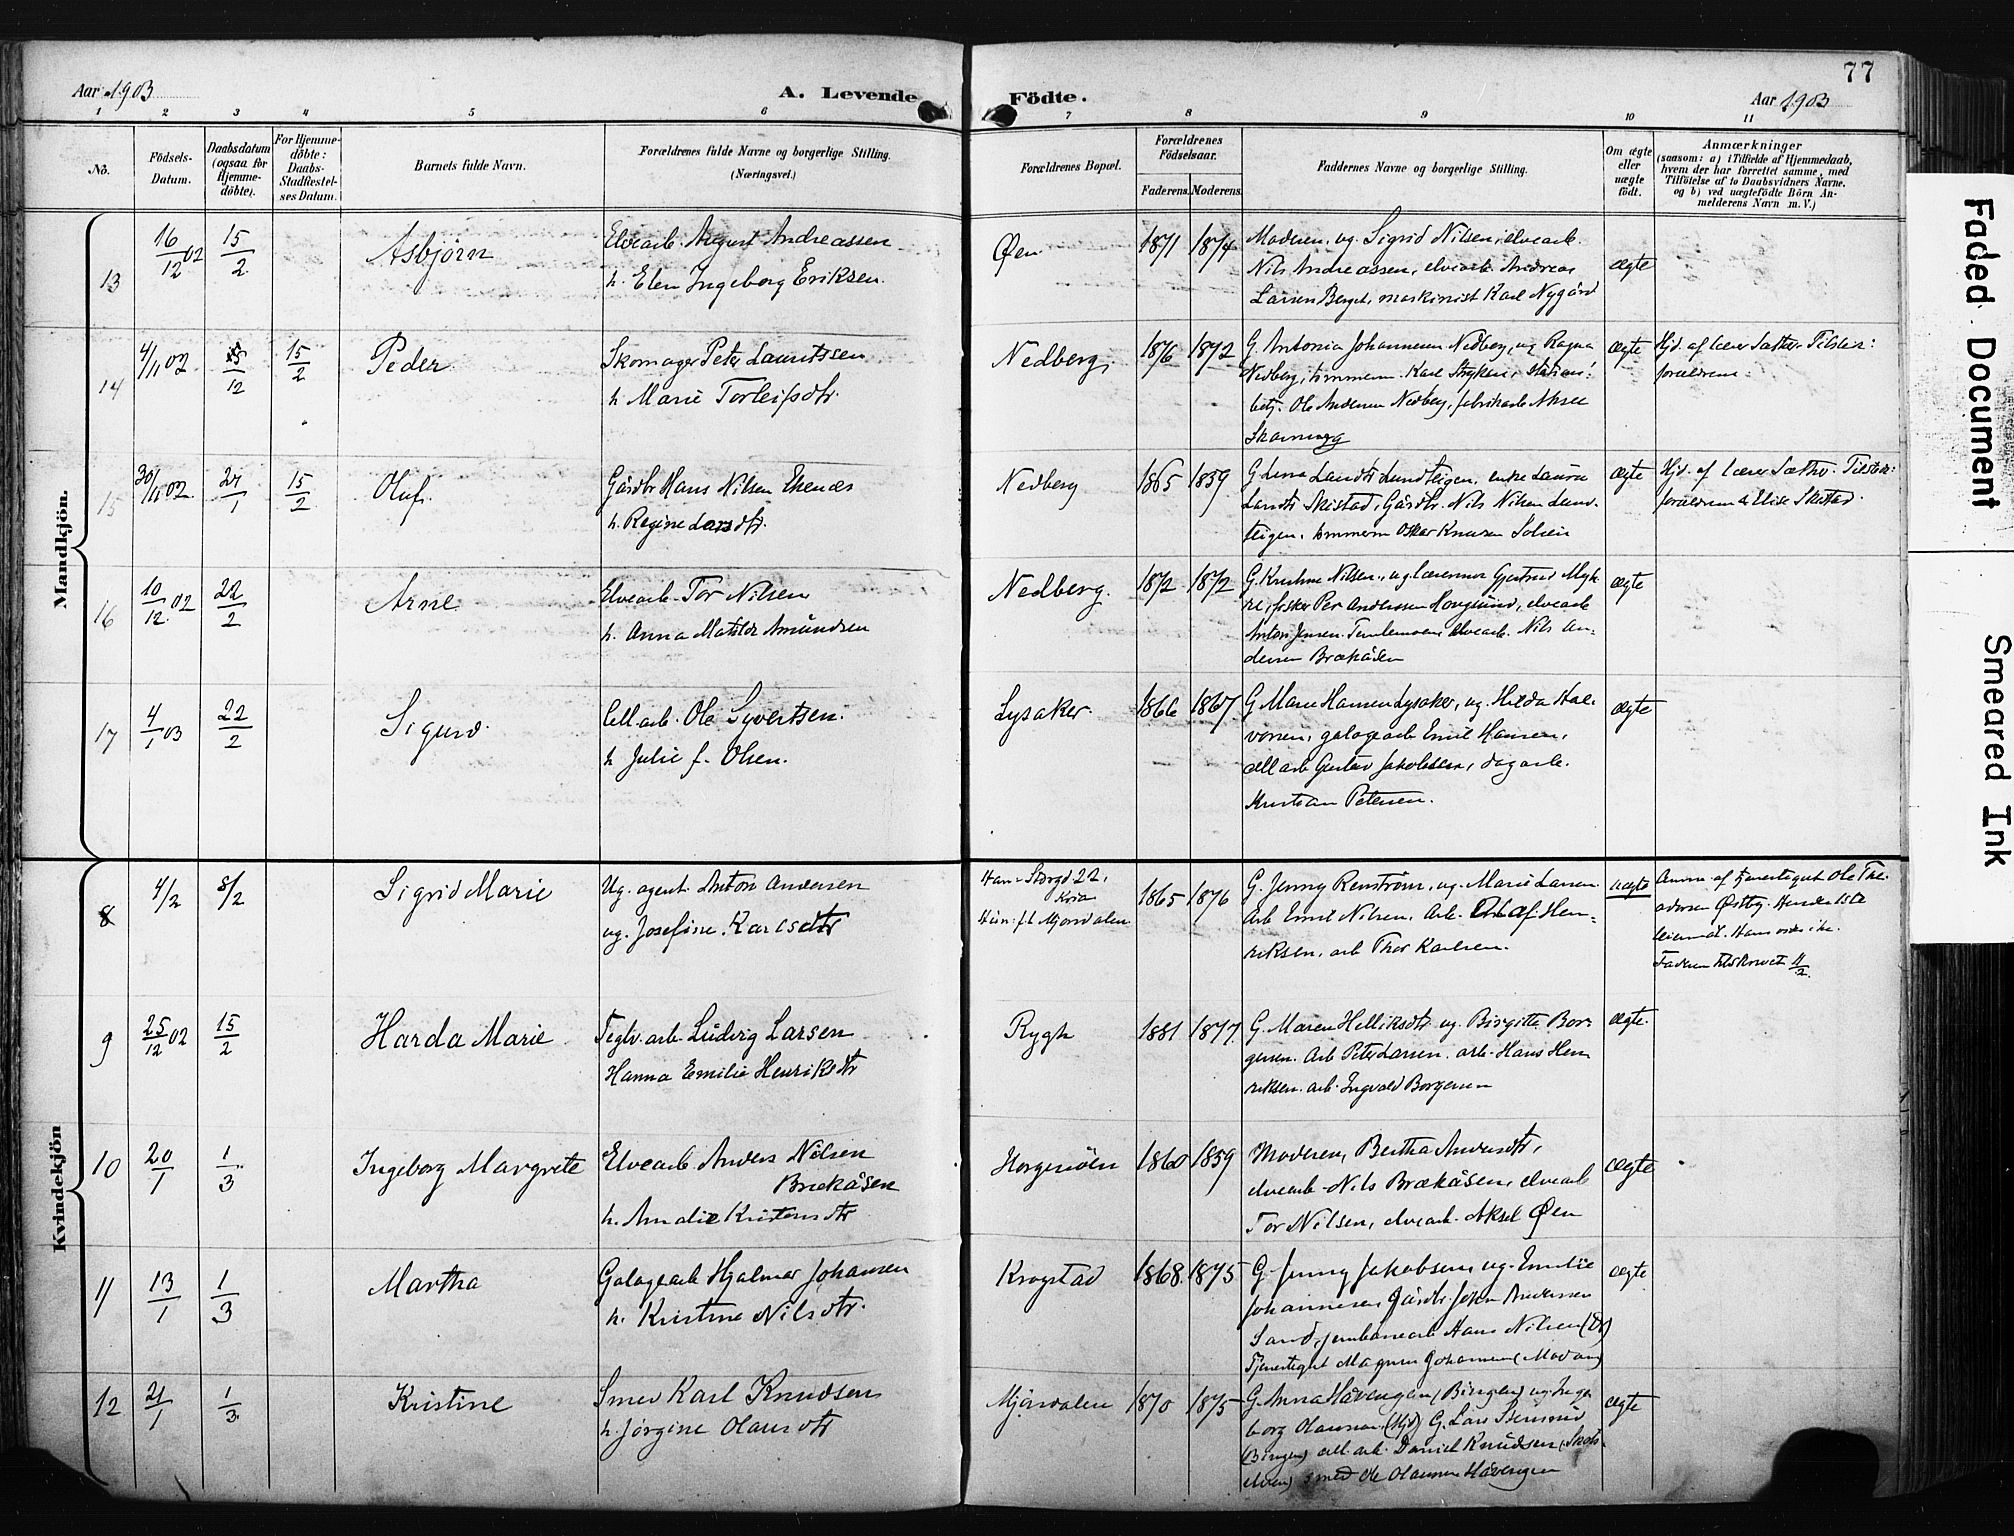 77
Aar 1903
A. Levende
Födte.
Aar 1903
1 2 3 4 5 6 7 8 9 10 11
No.
Födsels-
Datum.
Daabsdatum
(ogsaa for
Hjemme-
döbte).
For Hjemme-
döbte:
Daabs-
Stadfæstel-
ses Datum.
Barnets fulde Navn.
Forældrenes fulde Navne og borgerlige Stilling.
(Næringsvei.)
Forældrenes Bopæl.
Forældrenes
Födselsaar.
Faderens. Moderens.
Faddernes Navne og borgerlige Stilling.
Om ægte
eller
uægte
födt.
Anmærkninger
(saasom: a) i Tilfælde af Hjemmedaab,
hvem der har forrettet samme, med
Tilföielse af to Daabsvidners Navne.
og b) ved uægtefödte Börn An-
melderens Navn m. V.)
Mandkjön.
13
16/12 02
15/2
Asbjørn
Elvearb. August Andreassen
h. Elen Ingeborg Eriksen.
Øen
1871 1874
Moderen, ug. Sigrid Nilsen, elvearb.
Nils Andreassen, elvearb. Andreas
Larsen Berget, maskinist Karl Nygård
ægte
14
4/11 02
/12
15/2
Peder
Skomager Peter Lauritssen
h. Marie Torleifsdtr.
Nedberg.
1876 1872
G. Antonia Johannesen Nedberg, ug Ragna
Nedberg, tømmerm. Karl Stryken, stations-
betj. Ole Andersen Nedberg, fabrikarb. Aksel
ægte
Hjd. af lærer Sæther. Tilsted:
forældrene.
15
30/11 02
27/1
15/2
Oluf.
Gårdbr Hans Nilsen Ekenæs
h. Regine Larsdtr.
Nedberg
1865 1859
G. Lena Larsdtr Lundteigen, enke Laura
Larsdtr Skistad, Gårdbr. Nils Nilsen Lund-
teigen, tømmerm Oskar Knutsen Solsein
ægte
Hjd. af lærer Sæther. Tilsted:
forældrene & Elise Skistad.
16
10/12 02
22/2
Arne
Elvearb. Tor Nilsen
h. Anna Matilde Amundsen
Nedberg.
1872 1872
G. Kristine Nilsen, ug. lærerinne Gjertrud Myh-
re, fisker Per Anderssen Horgsund, elvearb
Anton Jensen Temlemoen, elvearb. Nils An-
dersen Brækåsen
ægte
17
4/1 03
22/2
Sigurd.
Cell.arb. Ole Syvertsen.
h Julie f. Olsen.
Lysaker.
1866 1867
G. Marie Hansen Lysaker, ug. Hilda Hal-
vorsen, galogearb Emil Hansen,
cell arb Gustav Jakobsen, dagarb.
Kristian Petersen.
ægte
Kvindekjön
8
4/2
8/2
Sigrid Marie
Ug. agent. Anton Andersen
ug. Josefine Karlsdtr
Han: Storgd 22,
Kria
Hun: f.t. Mjøndalen
1865 1876
G. Jenny Renström, ug. Marie Larsen.
Arb Emil Nilsen. Arb. Olaf Hen-
riksen, arb Thor Karlsen.
uægte
Anm. af tjenestegut Ole The-
odorsen Østby. Hendes 1ste
leiermål. Hans vides ikke.
Faderen tilskrevet 11/2.
9
25/12 02
15/2
Harda Marie
Teglv.arb. Ludvig Larsen
Hanna Emilie Henriksdtr
Rygh
1881 1877
G. Maren Helliksdtr ug. Birgitte Bor-
gersen. Arb Peter Larsen. arb. Hans Hen
riksen. arb. Ingvald Borgersen
ægte.
10
20/1
1/3
Ingeborg Margrete
Elvearb Anders Nilsen
Brækåsen
h. Amalie Kristensdtr
Horgenöen
1860 1859
Moderen, Bertha Andersdtr,
elvearb. Nils Brækåsen, elvearb
Tor Nilsen, elvearb. Aksel Øen
ægte
11
13/1
1/3
Martha
Galogearb Hjalmar Johansen
h. Kristine Nilsdtr.
Krogstad
1868. 1875
G. Jenny Jakobsen, ug. Emilie
Johannesen, Gårdbr. John Andersen
Sand, jernbanearb Hans Nilsen
Tjenestegut Magnus Johansen (Modum)
ægte
12
21/1
1/3
Kristine
Smed Karl Knudsen
h. Jørgine Olausdtr
Mjøndalen
1870 1875
G. Anna Håvengen (Bingen) ug. Inge
borg Olaussen (Mjd) G. Lars
(Bingen) cell. arb. Daniel Knudsen (Skots-
elven) smed Ole Olaussen Håvengen
ægte
Faded Document
Smeared Ink